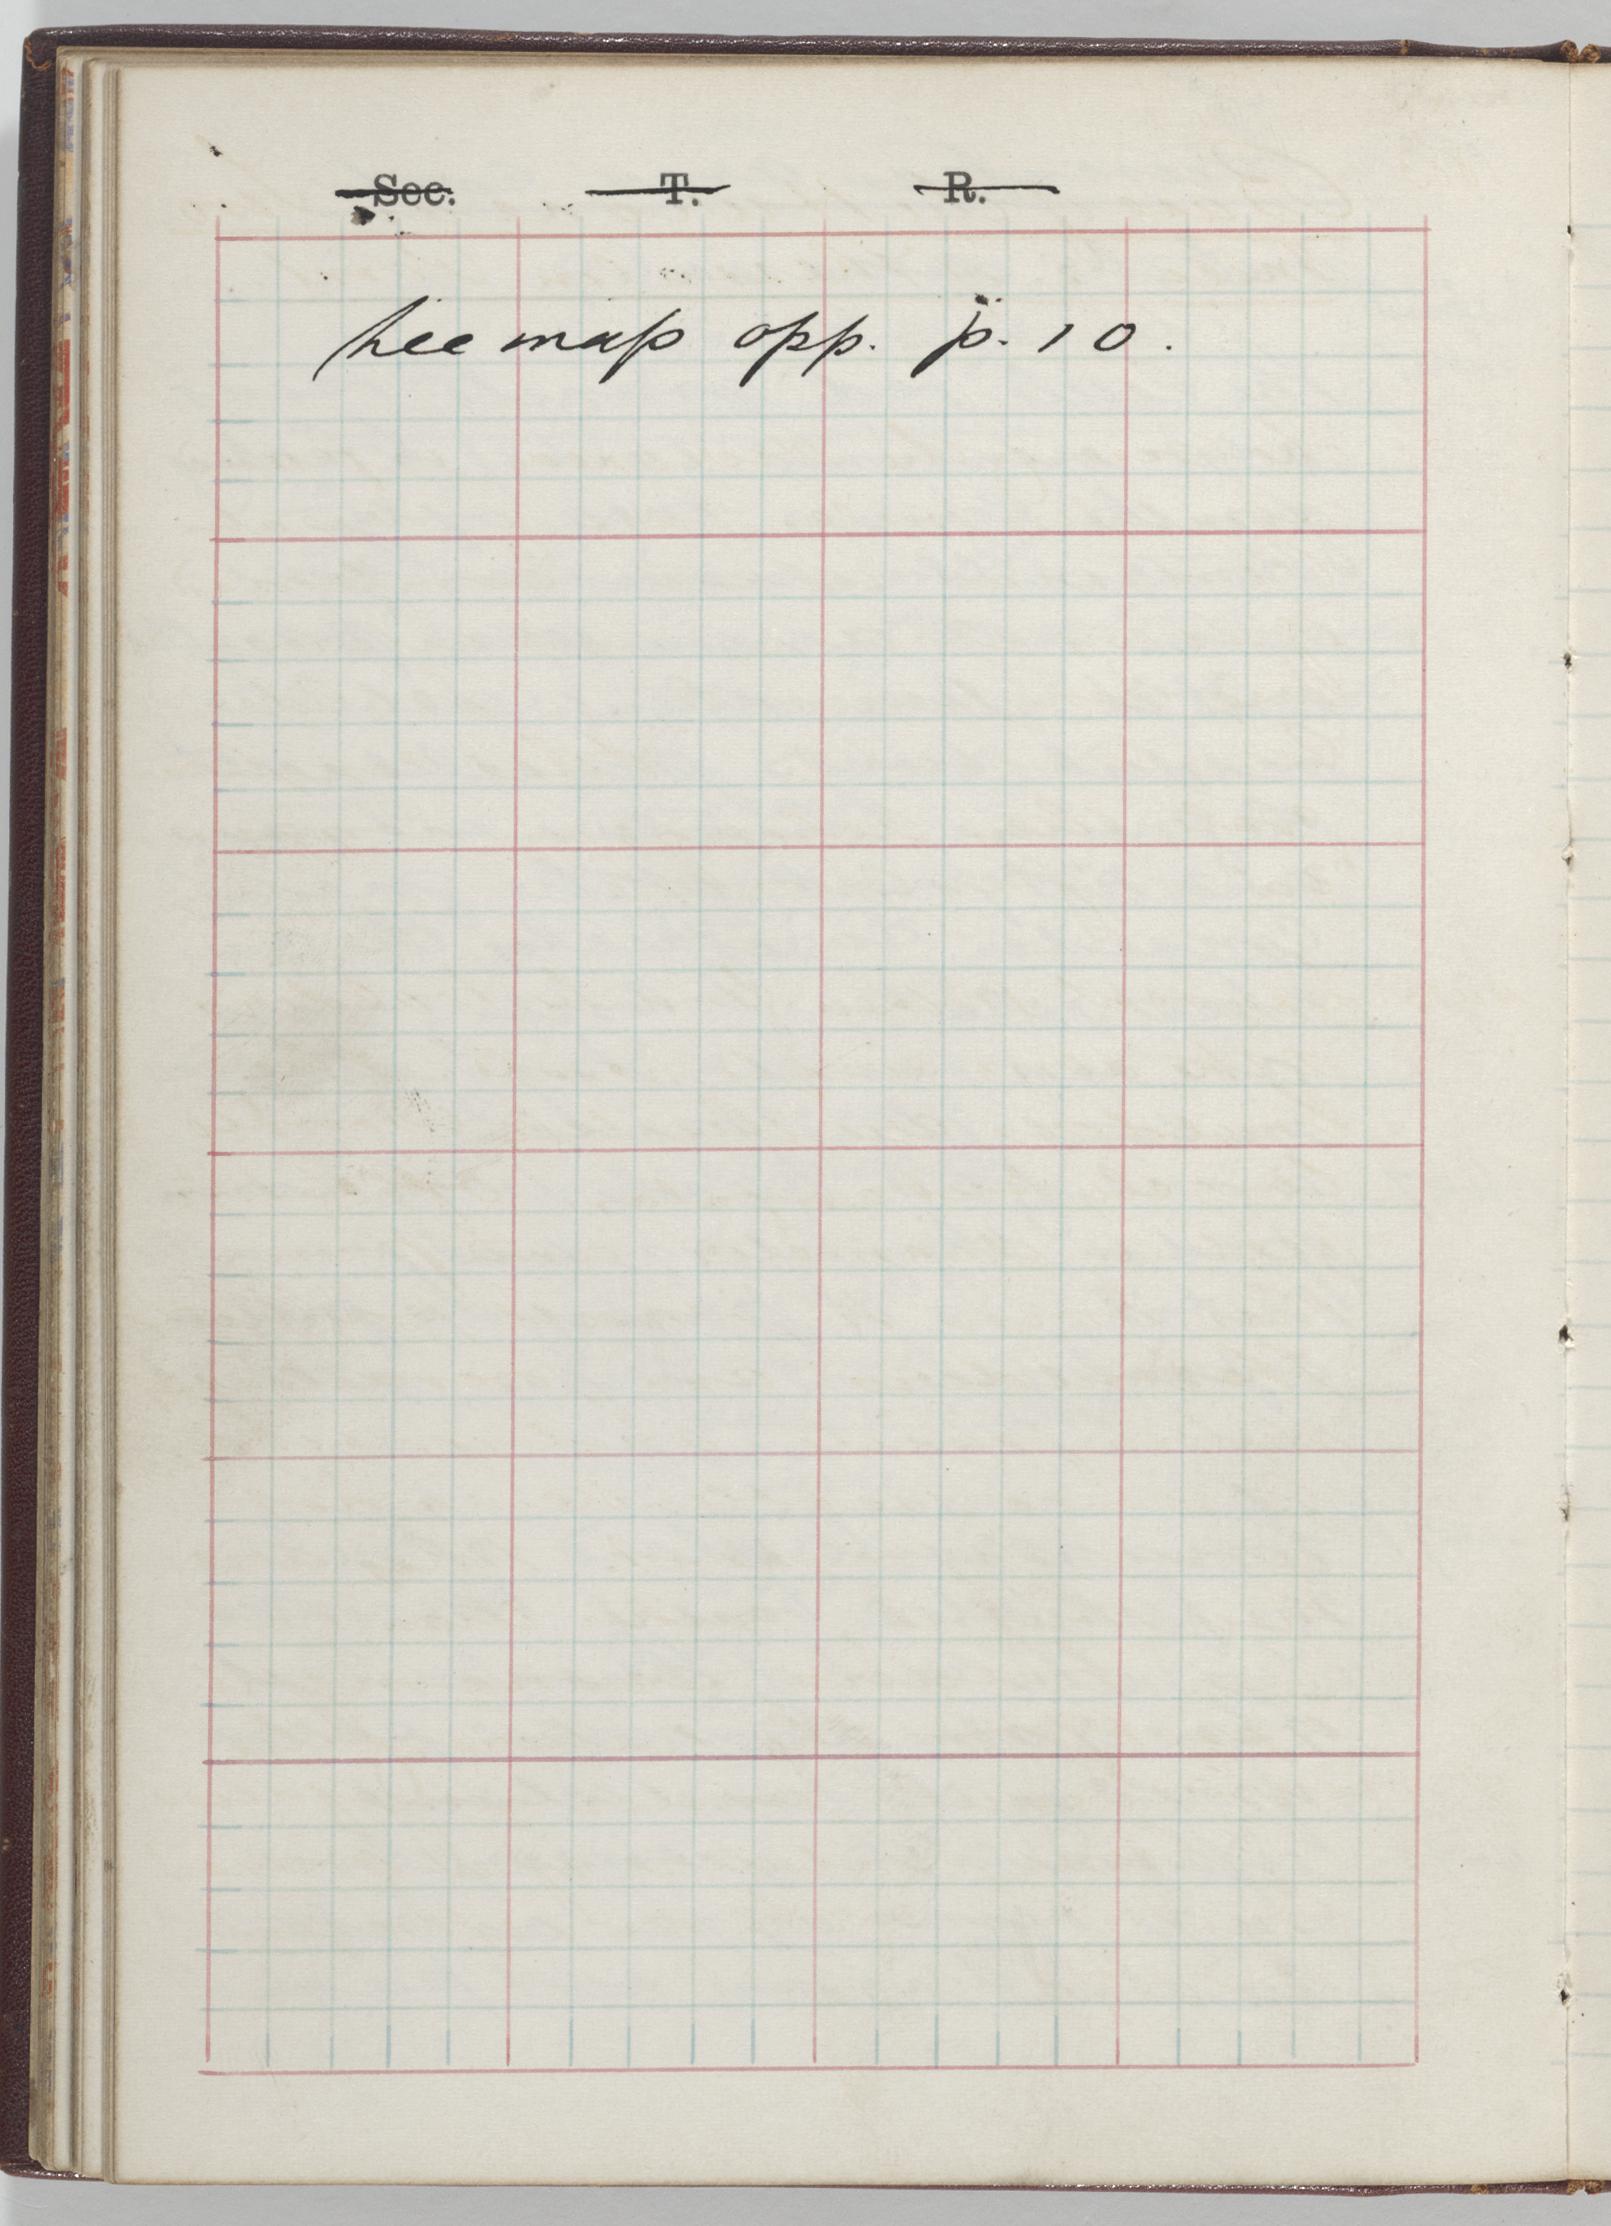 Sec. T. R.
See map opp. p. 10.